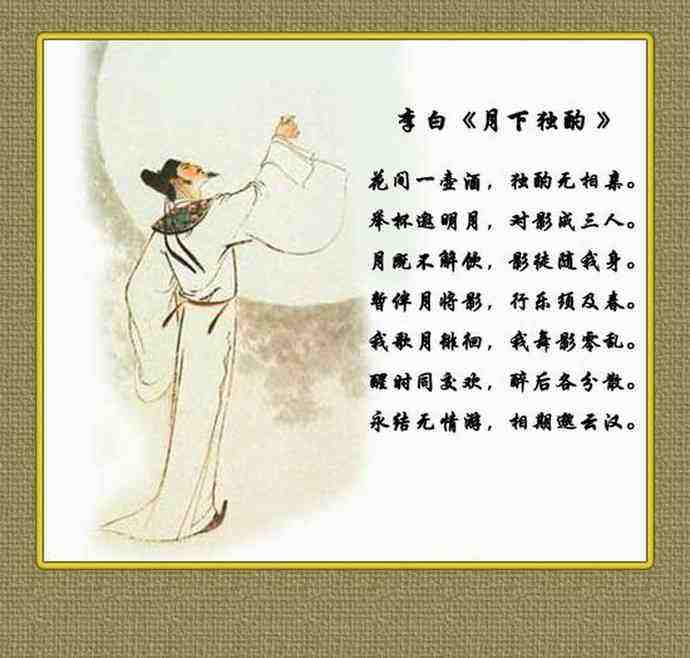 李白《月下独酌》
花间一壶酒，独酌无相亲。
举杯邀明月，对影成三人。
月既不解饮，影徒随我身。
暂伴月将影，行乐须及春。
我歌月徘徊，我舞影零乱。
醒时同交欢，醉后各分散。
永结无情游，相期邈云汉。